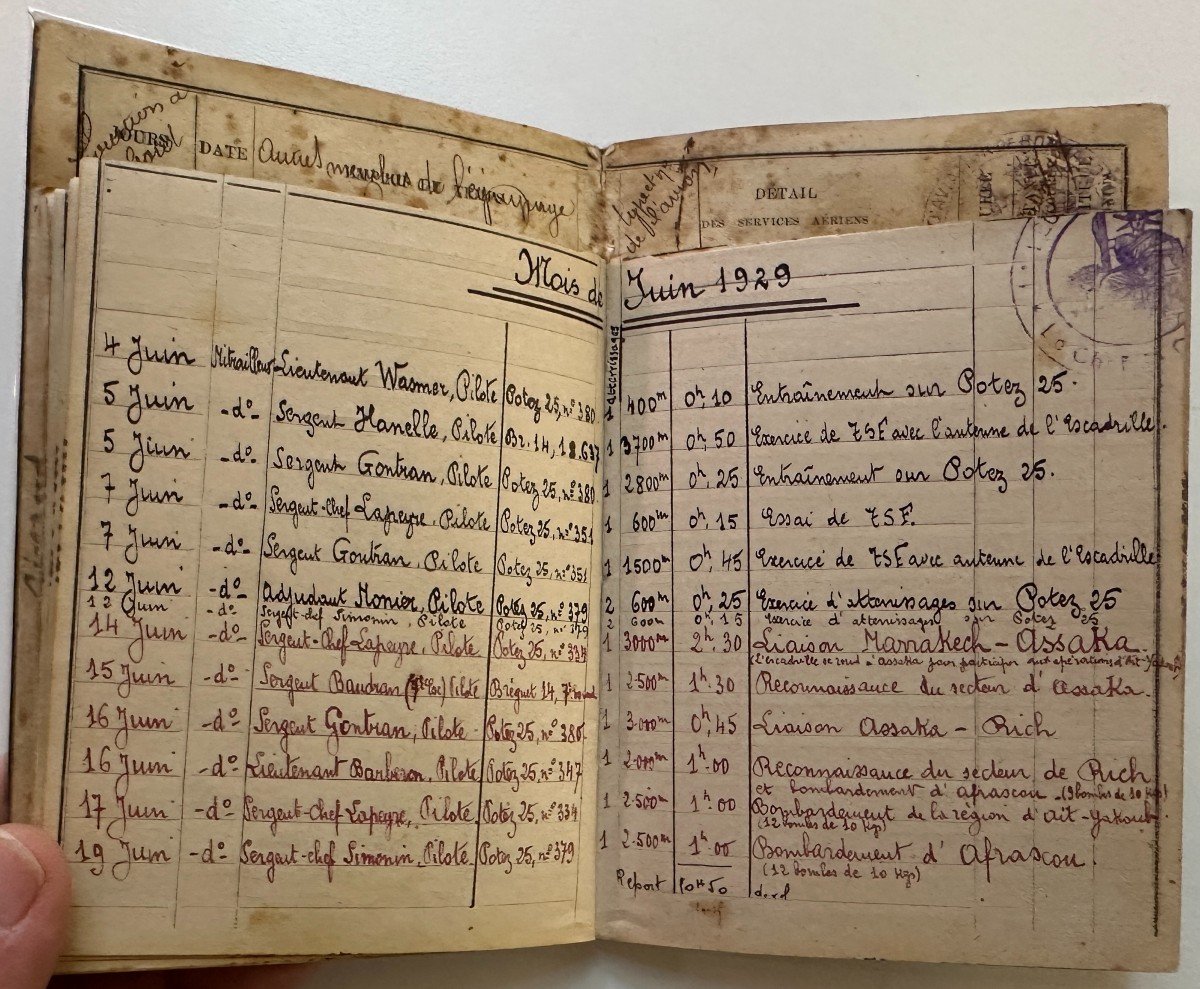 JOURS
à bord
DATE
Autres membres de l'équipage
de l'avion
DÉTAIL
DES SERVICES AÉRIENS
Mois de Juin 1929
atterrissages
4 Juin Mitrailleur Lieutenant Wasmer, Pilote Potez 25, nº 380 1 400m 0h,10 Entraînement sur Potez 25.
5 Juin -dº- Sergent Hanelle, Pilote Br. 14, 1 3700m 0h,50 Exercice de TSF avec l'antenne de l'Escadrille.
5 Juin -dº- Sergent Gontran, Pilote Potez 25, nº 380 1 2800m 0h,25 Entraînement sur Potez 25.
7 Juin -dº- Sergent-Chef Lapeyre, Pilote Potez 25, nº 351 1 600m 0h,15 Essai de TSF.
7 Juin -dº- Sergent Gontran, Pilote Potez 25, nº 351 1 1500m 0h,45 Exercice de TSF avec antenne de l'Escadrille
12 Juin -dº- Adjudant Monier, Pilote Potez 25, nº 379 2 600m 0h,25 Exercice d'atterrissages sur Potez 25
12 Juin -dº- Sergent-chef Simonin, Pilote Potez 25, nº 379 2 600m 0h,15 Exercice d'atterrissages sur Potez 25
14 Juin -dº- Sergent-Chef-Lapeyre, Pilote Potez 25, nº 334 1 3000m 2h,30 Liaison Marrakech-Assaka.
(l'escadrille se rend à Assaka pour participer aux opérations d'Aït-Yakoub)
15 Juin -dº- Sergent Baudran Pilote Bréguet 14, 1 2.500m 1h.30 Reconnaissance du secteur d'Assaka.
16 Juin -dº- Sergent Gontran, Pilote Potez 25, nº 380. 1 3.000m 0h,45 Liaison Assaka - Rich
16 Juin -dº- Lieutenant Barberon, Pilote Potez 25, nº 347 1 2.000m 1h.00 Reconnaissance du secteur de Rich
et bombardement d'Afrascou - (9 bombes de 10 kgs)
17 Juin -dº- Sergent-Chef Lapeyre, Pilote Potez 25, nº 334 1 2.500m 1h.00 Bombardement de la région d'Aït-Yakoub.
(12 bombes de 10 kgs)
19 Juin -dº- Sergent-chef Simonin, Pilote Potez 25, nº 379 1 2.500m 1h.00 Bombardement d'Afrascou.
(12 bombes de 10 kgs)
Report 10H50